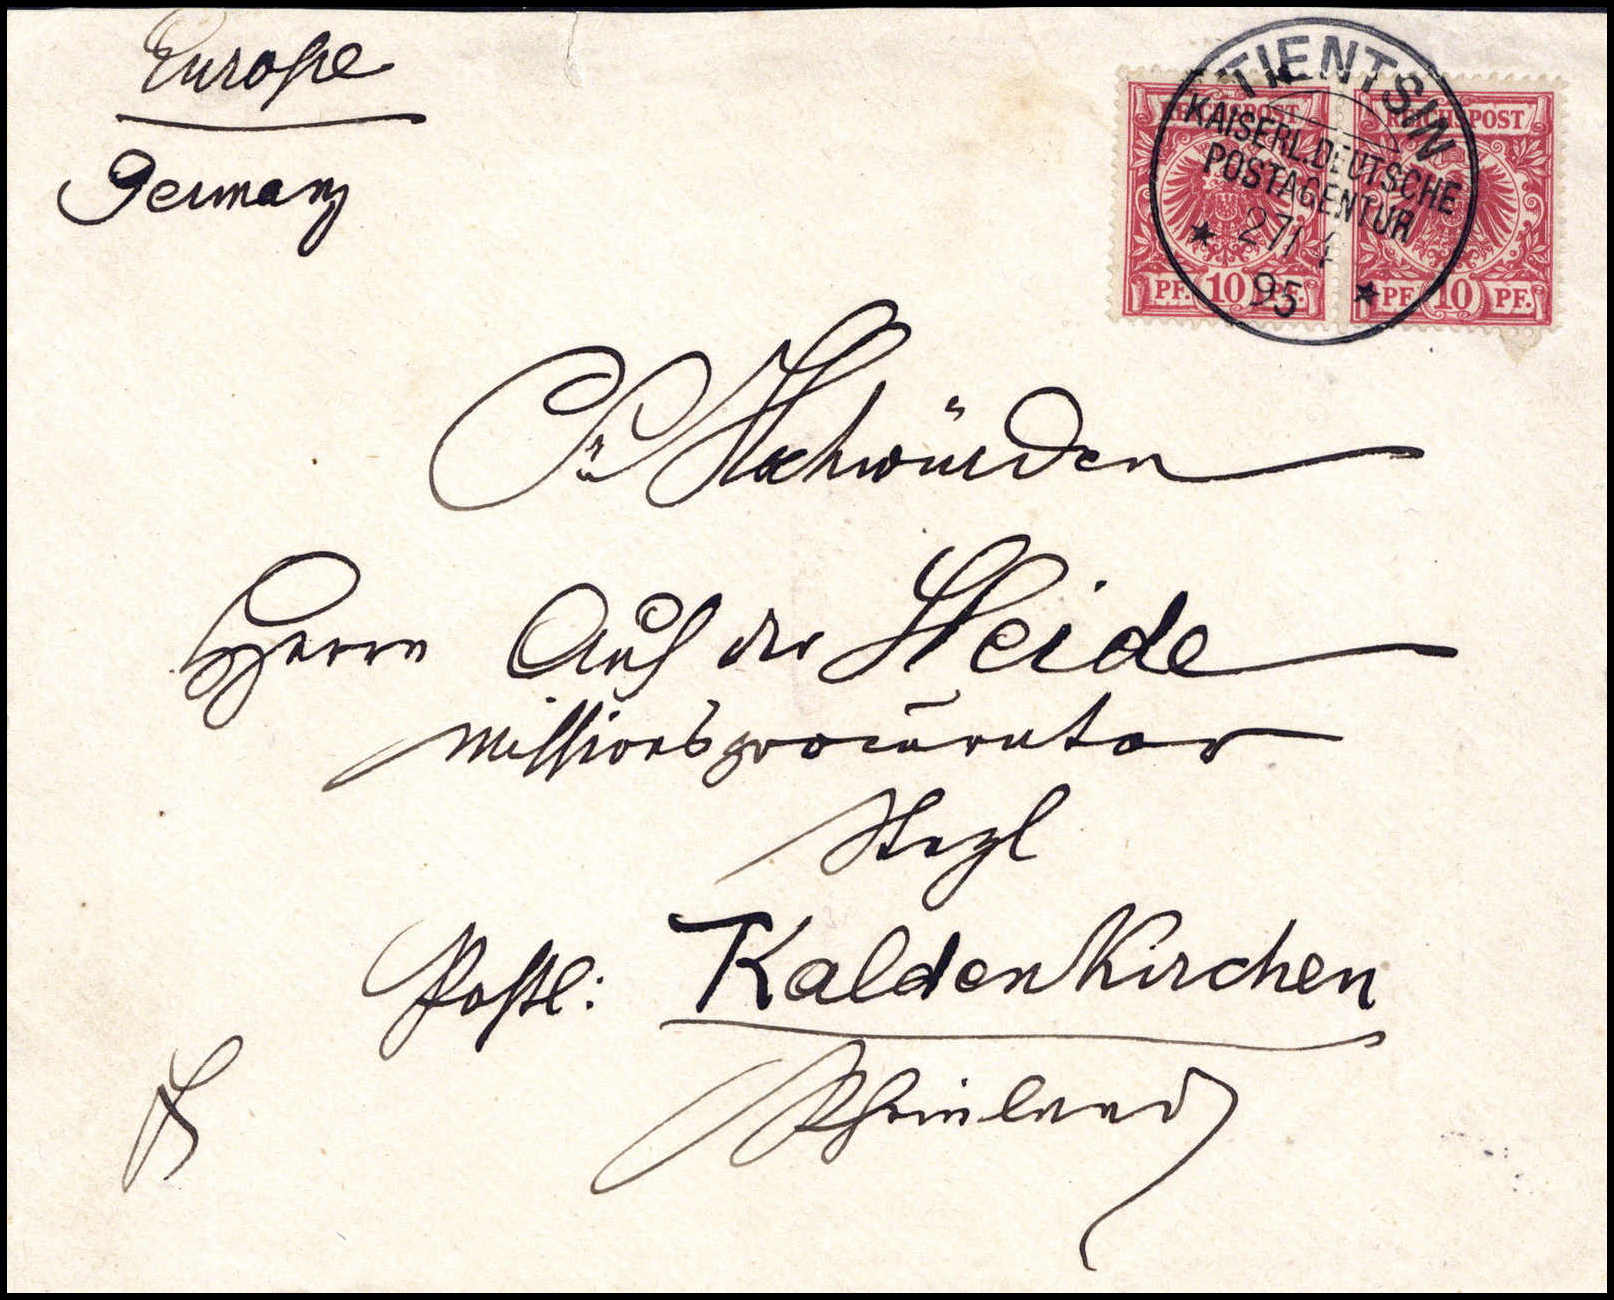 Europe
Germany
REICHSPOST REICHSPOST
PF. 10 PF. PF. 10 PF.
TIENTSIN
KAISERL. DEUTSCHE
POSTAGENTUR
* 27/4 *
95
Sr Hochwürden
Herrn Auf der Heide
Missionsprocurator
Steyl
Postst:
Kaldenkirchen
Rheinland